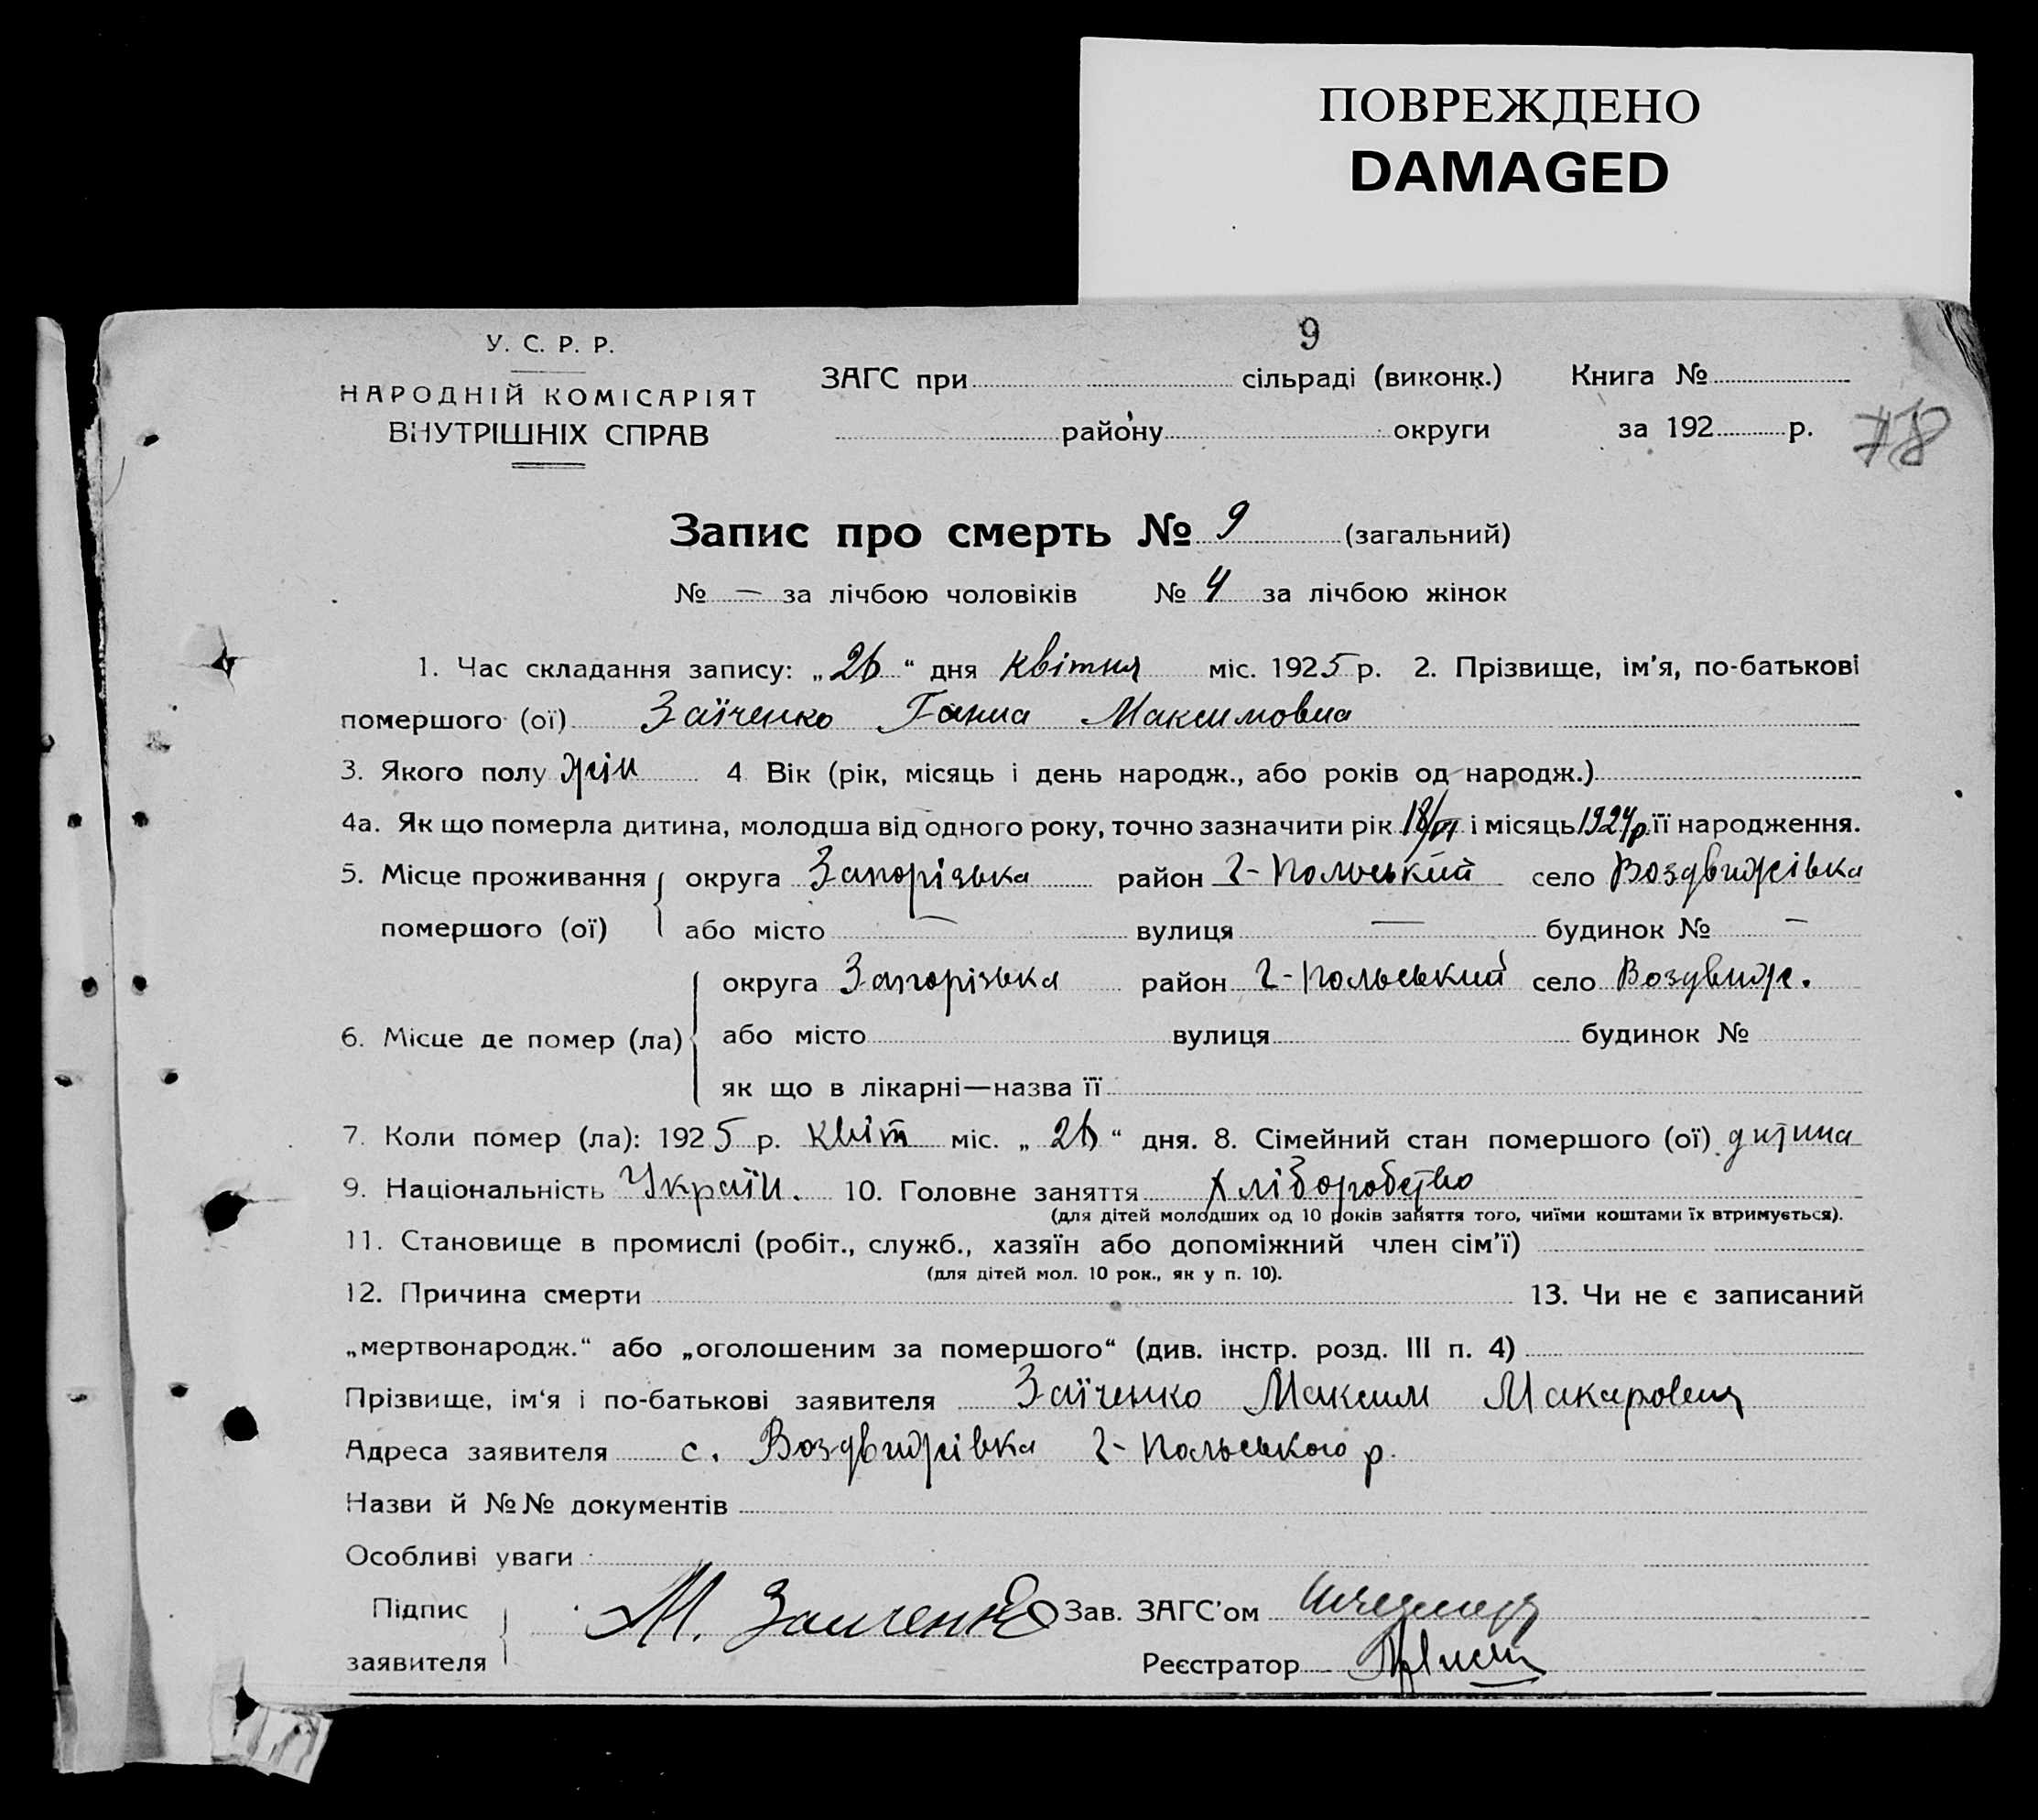 ПОВРЕЖДЕНО
DAMAGED
9
У. С. Р. Р.
НАРОДНІЙ КОМІСАРІЯТ
ВНУТРІШНІХ СПРАВ
ЗАГС при сільраді (виконк.) Книга №
району округи за 192 р.
Запис про смерть № 9 (загальний)
№ — за лічбою чоловіків № 4 за лічбою жінок
1. Час складання запису: „26“ дня квітня міс. 1925 р. 2. Прізвище, ім'я, по-батькові
помершого (ої) Заїченко Ганна Максимовна
3. Якого полу жін 4 Вік (рік, місяць і день народж., або років од народж.)
4а. Як що померла дитина, молодша від одного року, точно зазначити рік 18/VI і місяць 1924р. її народження.
5. Місце проживання округа Запорізька район 2-Польський село Воздвижівка
помершого (ої) або місто — вулиця — будинок № —
округа Запорізька район 2-Польський село Воздвиж.
6. Місце де помер (ла) або місто вулиця будинок №
як що в лікарні—назва її
7. Коли помер (ла): 1925 р. квіт міс. „26“ дня. 8. Сімейний стан помершого (ої) дитина
9. Національність Україн. 10. Головне заняття хліборобство
(для дітей молодших од 10 років заняття того, чиїми коштами їх втримується).
11. Становище в промислі (робіт., служб., хазяїн або допоміжний член сім'ї)
(для дітей мол. 10 рок., як у п. 10).
12. Причина смерти 13. Чи не є записаний
„мертвонародж.“ або „оголошеним за помершого“ (див. інстр. розд. III п. 4)
Прізвище, ім'я і по-батькові заявителя Заїченко Максим Макарович
Адреса заявителя с. Воздвижівка 2-Польського р.
Назви й №№ документів
Особливі уваги
Підпис М. Заиченко Зав. ЗАГС'ом
заявителя Реєстратор